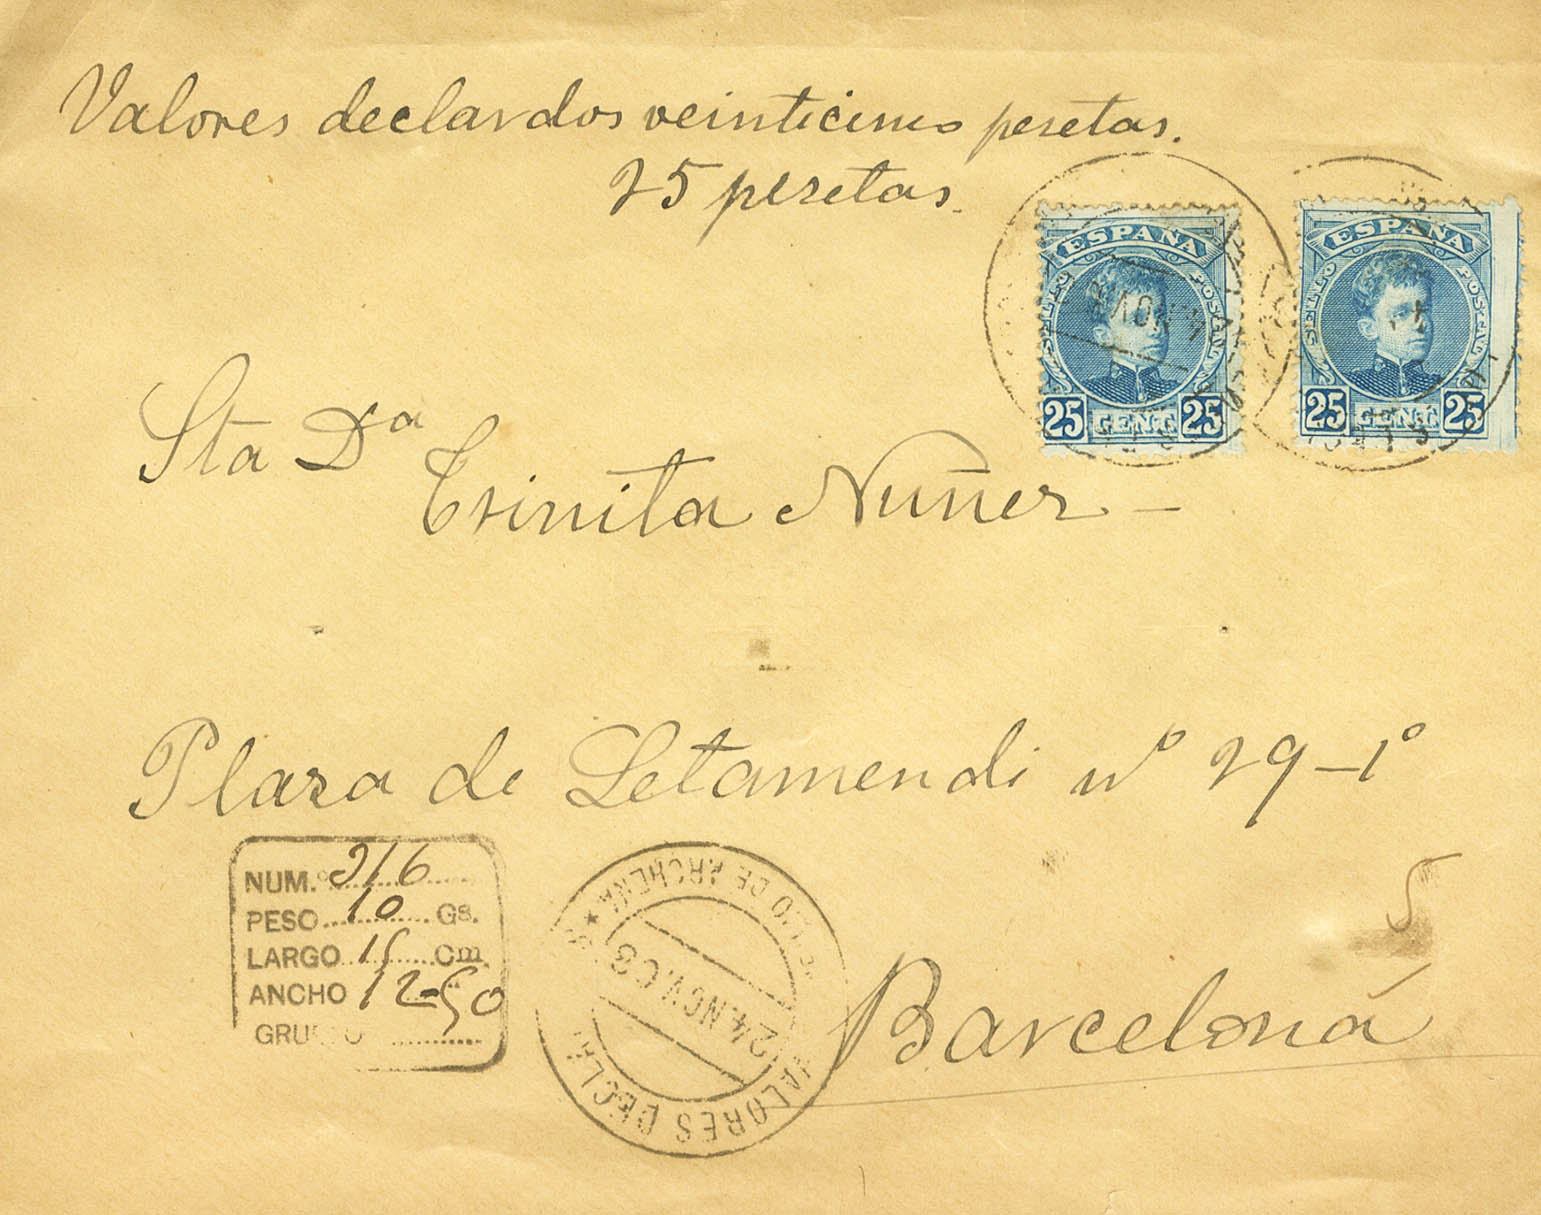 Valores declarados veinticinco pesetas.
25 pesetas.
ESPAÑA
SELLO POSTAL
25 CENT. 25
ESPAÑA
SELLO POSTAL
25 CENT. 25
Sta Dª
Trinita Nuñez -
Plaza de Letamendi nº 29-1º
NUM.º 916
PESO 10 Gs.
LARGO 15 Cm.
ANCHO 12-50
VALORES DECLAR
24 NOV. 03
DE ARCHENA
5
Barcelona